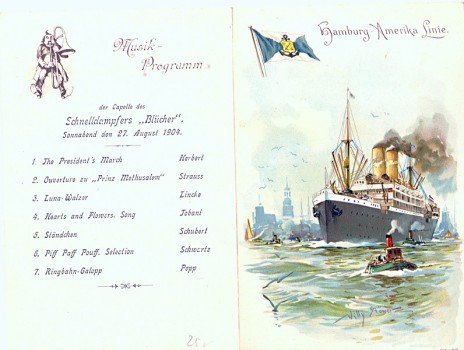 Musik-
Programm
der Capelle des
Schnelldampfers „Blücher".
Sonnabend den 27. August 1904.
1. The President's March Herbert
2. Ouverture zu „Prinz Methusalem" Strauss
3. Luna-Walzer Lincke
4. Hearts and Flowers. Song Tobani
5. Ständchen Schubert
6. Piff Paff Pouff. Selection Schwartz
7. Ringbahn-Galopp Popp
Hamburg-Amerika Linie.